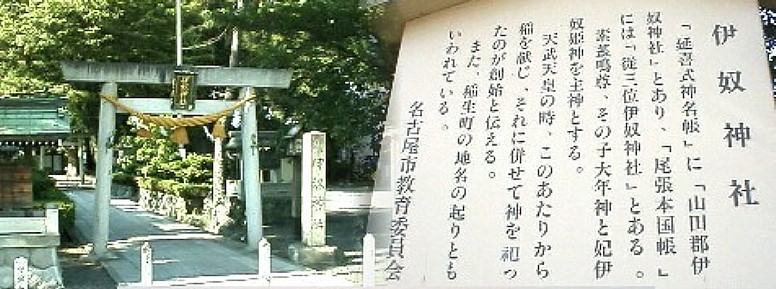 伊奴神社
「延喜式神名帳」に「山田郡伊
奴神社」とあり、「尾張本国帳」
には「従三位伊奴神社」とある。
素盞鳴尊、その子大年神と妃伊
奴姫神を主神とする。
天武天皇の時、このあたりから
稲を献じ、それに併せて神を祀っ
たのが創始と伝える。
また、稲生町の地名の起りとも
いわれている。
名古屋市教育委員会